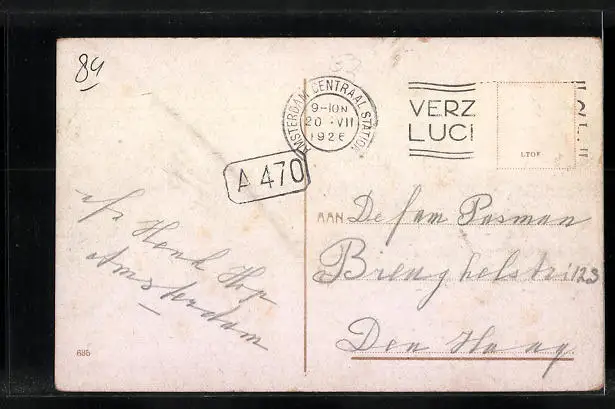 84
AMSTERDAM CENTRAAL STATION
9-10N
20 VII
1926
VERZ
LUCI
LTOF
A 470
AAN De fam Posman
Breughelstr 123
Den Haag
afz Henk Hop
Amsterdam
685